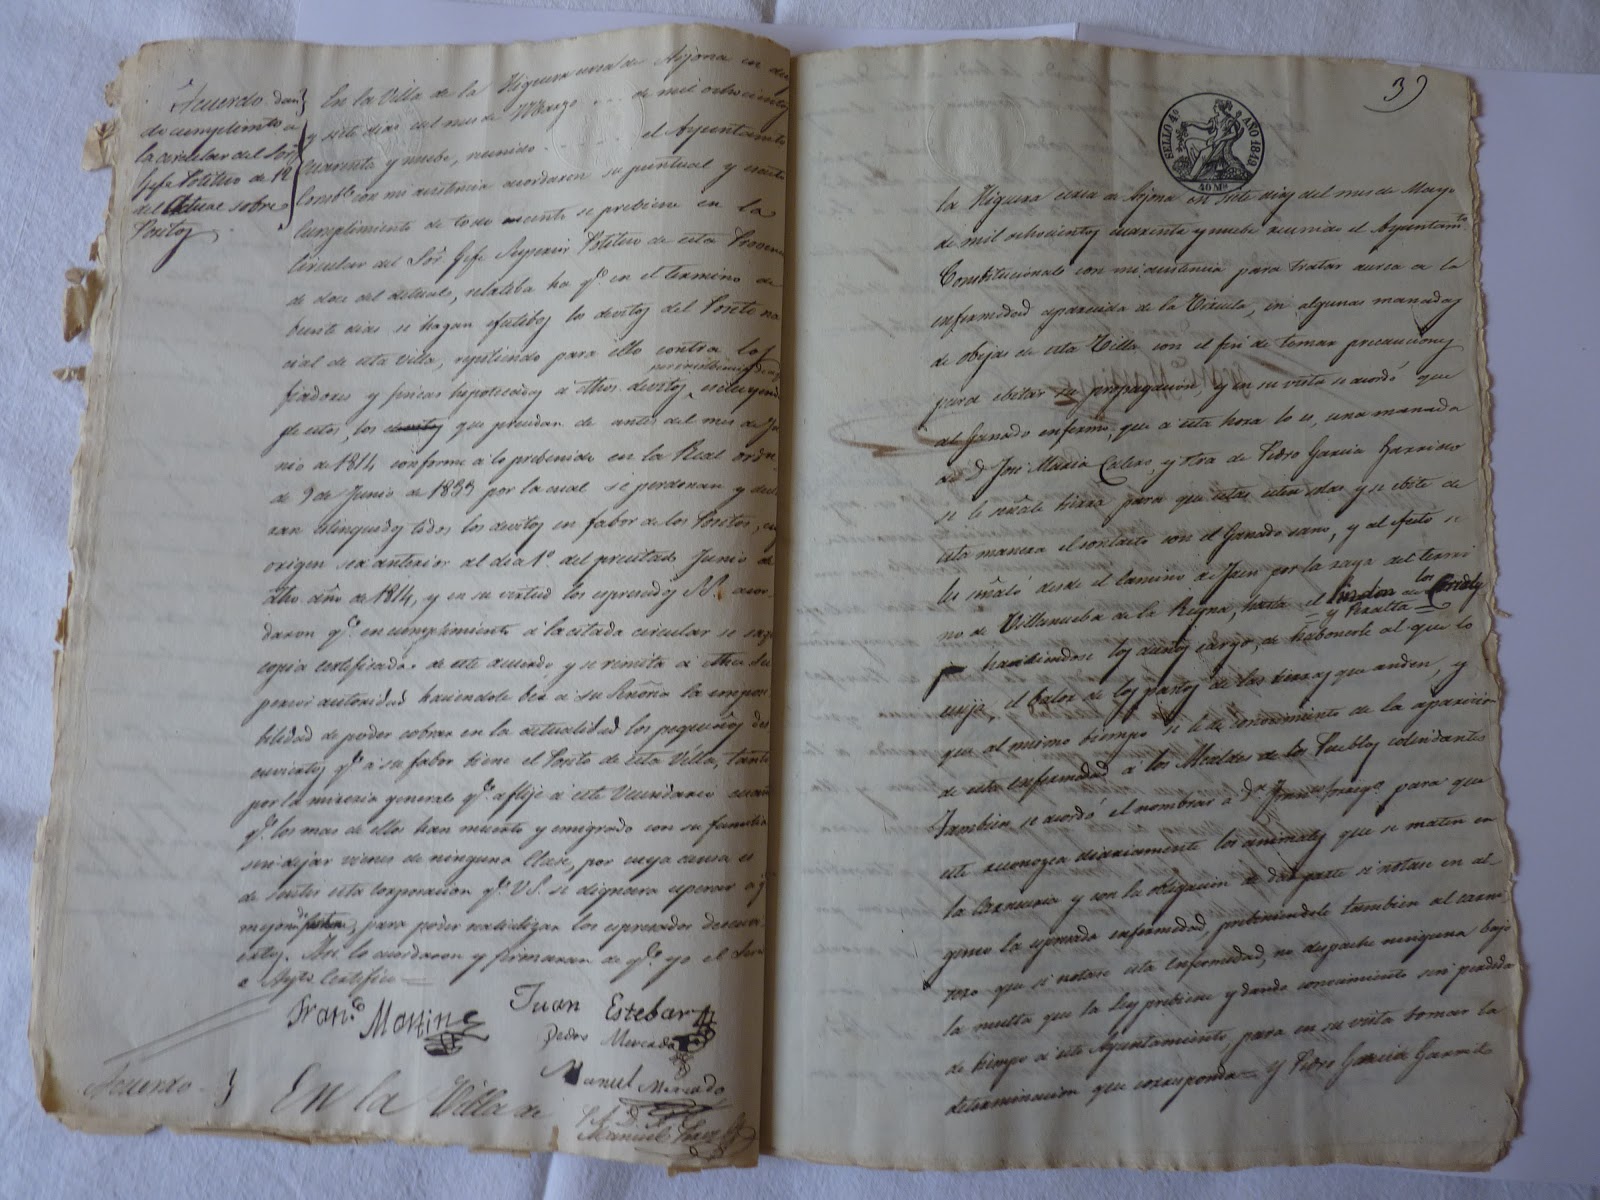 Acuerdo dan
do cumplimto a
la circular del Sor
Gefe Politico de 12
del Actual sobre
Positos
En la Villa de la Higuera cerca de Arjona en diez
y siete dias del mes de Marzo de mil ochocientos
cuarenta y nuebe, reunido el Ayuntamto
Constl con mi asistencia acordaron su puntual y esacto
cumplimiento de todo cuanto se prebiene en la
circular del Sor Gefe Superior Politico de esta Provincia
de doce del actual, relatiba ha qe en el termino de
beinte dias se hagan efetibos los devitos del Posito na
cial de esta villa, repitiendo para ello contra los
fiadores y fincas hipotecadas a dhos devitos, escluyendo
de estos, los que prendan de antes del mes de Ju
nio de 1814 conforme a lo prebenido en la Real orden
de 9 de Junio de 1833 por la cual se perdonan y decla
ran estinguidos todos los devitos en fabor de los Positos, cuyo
origen sea anterior al dia 1º del precitado Junio de
dho año de 1814, y en su virtud los espresados SS. acor
daron qe en cumplimiento a la citada circular se saque
copia certificada de este acuerdo y se remita a dha Su
perior autoridad haciendole ber a su Señoria la imposi
bilidad de poder cobrar en la actualidad los pequeños des
cuviertos qe a su fabor tiene el Posito de esta Villa, tanto
por la miseria general qe aflije a este Vecindario cuanto
qe los mas de ellos han muerto y emigrado con su familia
sin dejar vienes de ninguna clase, por cuya causa es
de sentir esta corporacion qe V.S. se dignara esperar a qe
mejore para poder realidizar los espresados descuvi
ertos. Asi lo acordaron y firmaran de qe yo el Secro
de Ayto Certifico=
Franco Martinez
Juan Esteban
Pedro Mercado
Manuel Mercado
P. A. D. A.
Manuel Perez
Acuerdo
En la Villa de
3
SELLO 4º AÑO 1849
40 Ms
la Higuera cerca de Arjona en siete dias del mes de Marzo
de mil ochocientos cuarenta y nuebe reunido el Ayuntamto
Constitucional con mi asistencia para tratar acerca de la
enfermedad aparecida de la Viricula, en algunas manadas
de obejas de esta Villa con el fin de tomar precauciones
para ebitar su propagacion, y en su vista se acordó que
al Ganado enfermo, que a esta hora lo es, una manada
de D. Jose Maria Calero, y otra de Pedro Garcia Garrido
se le señale tierra para que estas esten solas y se ebite de
esta manera el contacto con el Ganado sano, y al efecto se
les señaló desde el camino de Jaen por la raya del termi
no de Villanueba de la Reyna, hasta el
los
y Peralta=
haciendose los dueños cargo, de habonerle al que lo
exija, el balor de los pastos de las tierras que anden, y
que al mismo tiempo se le de conocimiento de la aparicion
de esta enfermedad a los Alcaldes de los Pueblos colindantes
Tambien se acordó el nombrar a Dn para que
este reconozca diariamente los animales que se maten en
la Carneceria y con la obligacion de dar parte si notase en al
guno la espresada enfermedad, prebiniendole tambien al carni
cero que si notase esta enfermedad, no despache ninguna bajo
la multa que la ley prebiene y dando conocimiento sin perdida
de tiempo a este Ayuntamiento, para en su vista tomar la
determinacion que corresponda= Y Pedro Garcia Garrido